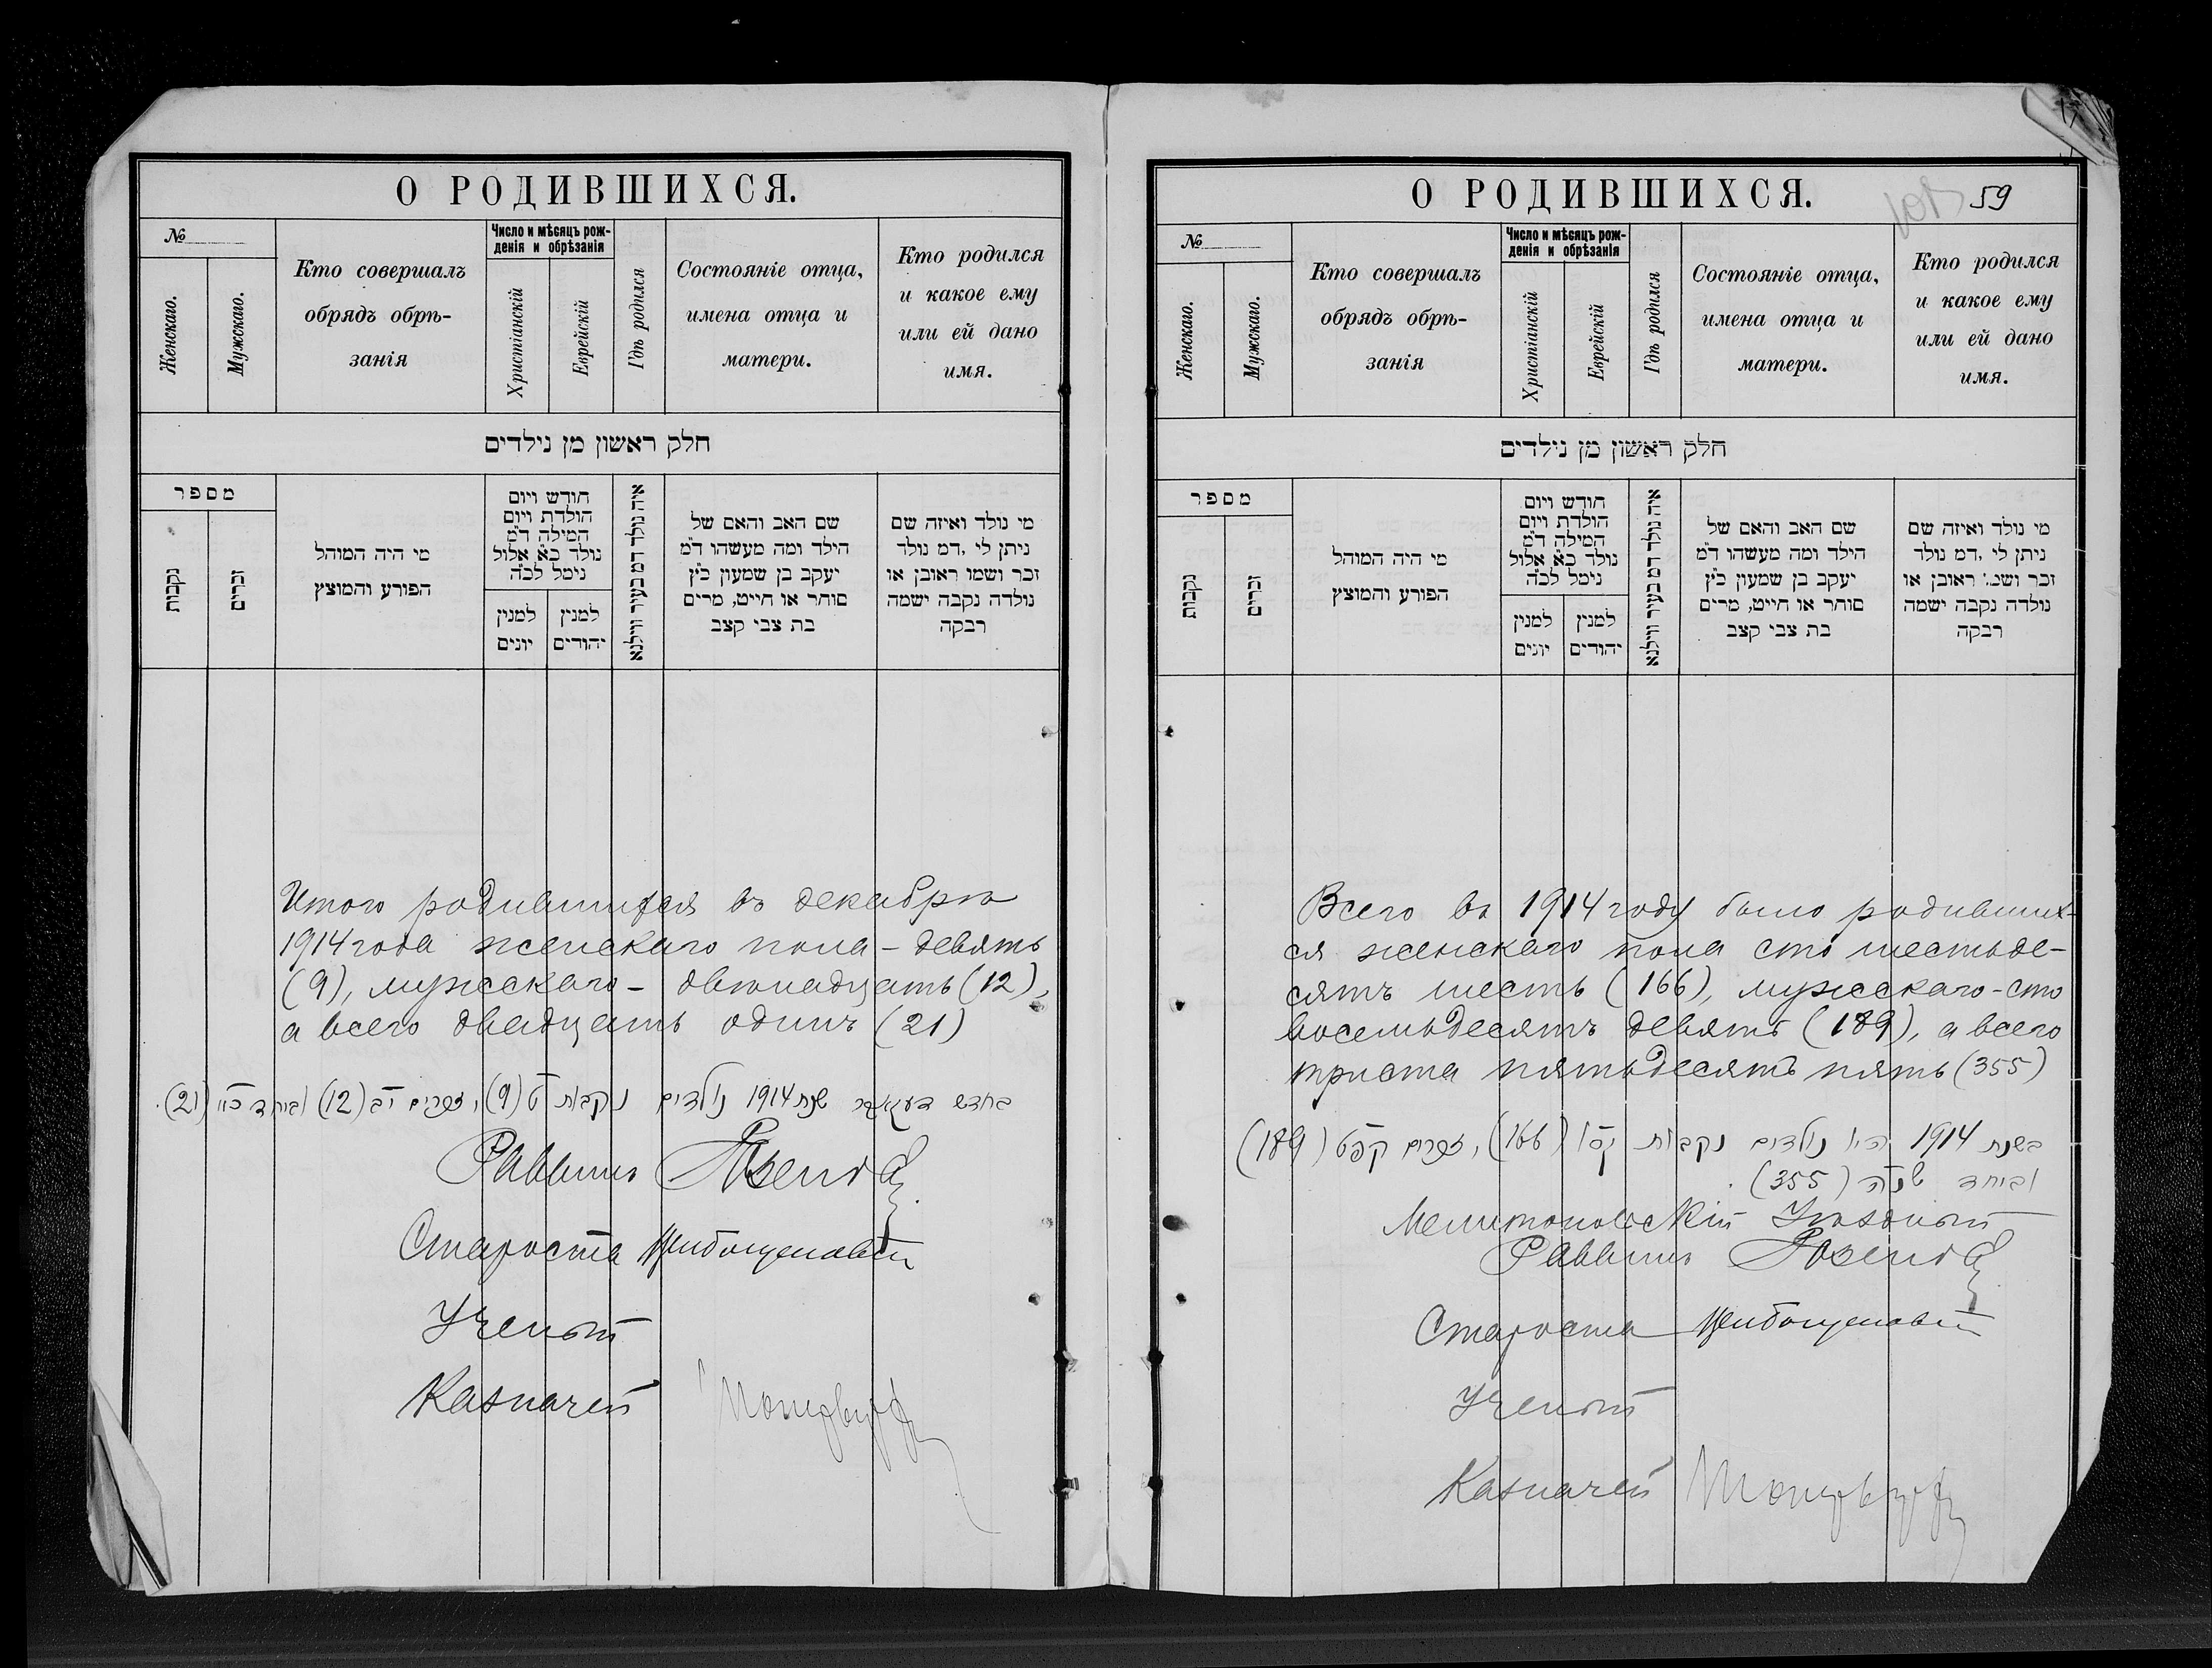 О РОДИВШИХСЯ.
№
Женскаго.
Мужскаго.
Кто совершалъ
обрядъ обрѣ-
занія
Число и мѣсяцъ рож-
денія и обрѣзанія
Христіанскій
Еврейскій
Гдѣ родился
Состояніе отца,
имена отца и
матери.
Кто родился
и какое ему
или ей дано
имя.
חלק ראשון מן נילדים
מספר
נקבות
זכרים
מי היה המוהל
הפורע והמוצץ
חודש ויום
הולדת ויום
המילה ד״מ
נולד כ״א אלול
נימל לכ״ה
למנין
יונים
למנין
יהודים
איה נולד דמ בעיר ווילנא
שם האב והאם של
הילד ומה מעשהו ד״מ
יעקב בן שמעון כ״ץ
סוחר או חייט, מרים
בת צבי קצב
מי נולד ואיזה שם
ניתן לי ,דמ נולד
זכר ושמו ראובן או
נולדה נקבה ישמה
רבקה
Итого родившихся въ декабрѣ
1914 года женскаго пола - девять
(9), мужскаго - двѣнадцать (12),
а всего двадцать одинъ (21)
בחדש דעקאבר שנת 1914 נולדים נקבות ט (9), זכרים יב (12) וביחד (21).
Раввинъ
Староста
Ученый
Казначей
О РОДИВШИХСЯ.
59
№
Женскаго.
Мужскаго.
Кто совершалъ
обрядъ обрѣ-
занія
Число и мѣсяцъ рож-
денія и обрѣзанія
Христіанскій
Еврейскій
Гдѣ родился
Состояніе отца,
имена отца и
матери.
Кто родился
и какое ему
или ей дано
имя.
חלק ראשון מן נילדים
מספר
נקבות
זכרים
מי היה המוהל
הפורע והמוצץ
חודש ויום
הולדת ויום
המילה ד״מ
נולד כ״א אלול
נימל לכ״ה
למנין
יונים
למנין
יהודים
איה נולד דמ בעיר ווילנא
שם האב והאם של
הילד ומה מעשהו ד״מ
יעקב בן שמעון כ״ץ
סוחר או חייט, מרים
בת צבי קצב
מי נולד ואיזה שם
ניתן לי ,דמ נולד
זכר ושמו ראובן או
נולדה נקבה ישמה
רבקה
Всего въ 1914 году было родивших-
ся женскаго пола сто шестьде-
сятъ шесть (166), мужскаго - сто
восемьдесятъ девять (189), а всего
триста пятьдесятъ пять (355)
בשנת 1914 היו נולדים נקבות קסו (166), זכרים קפט (189)
וביחד שנה (355).
Мелитопольскій Уѣздный
Раввинъ
Староста
Ученый
Казначей